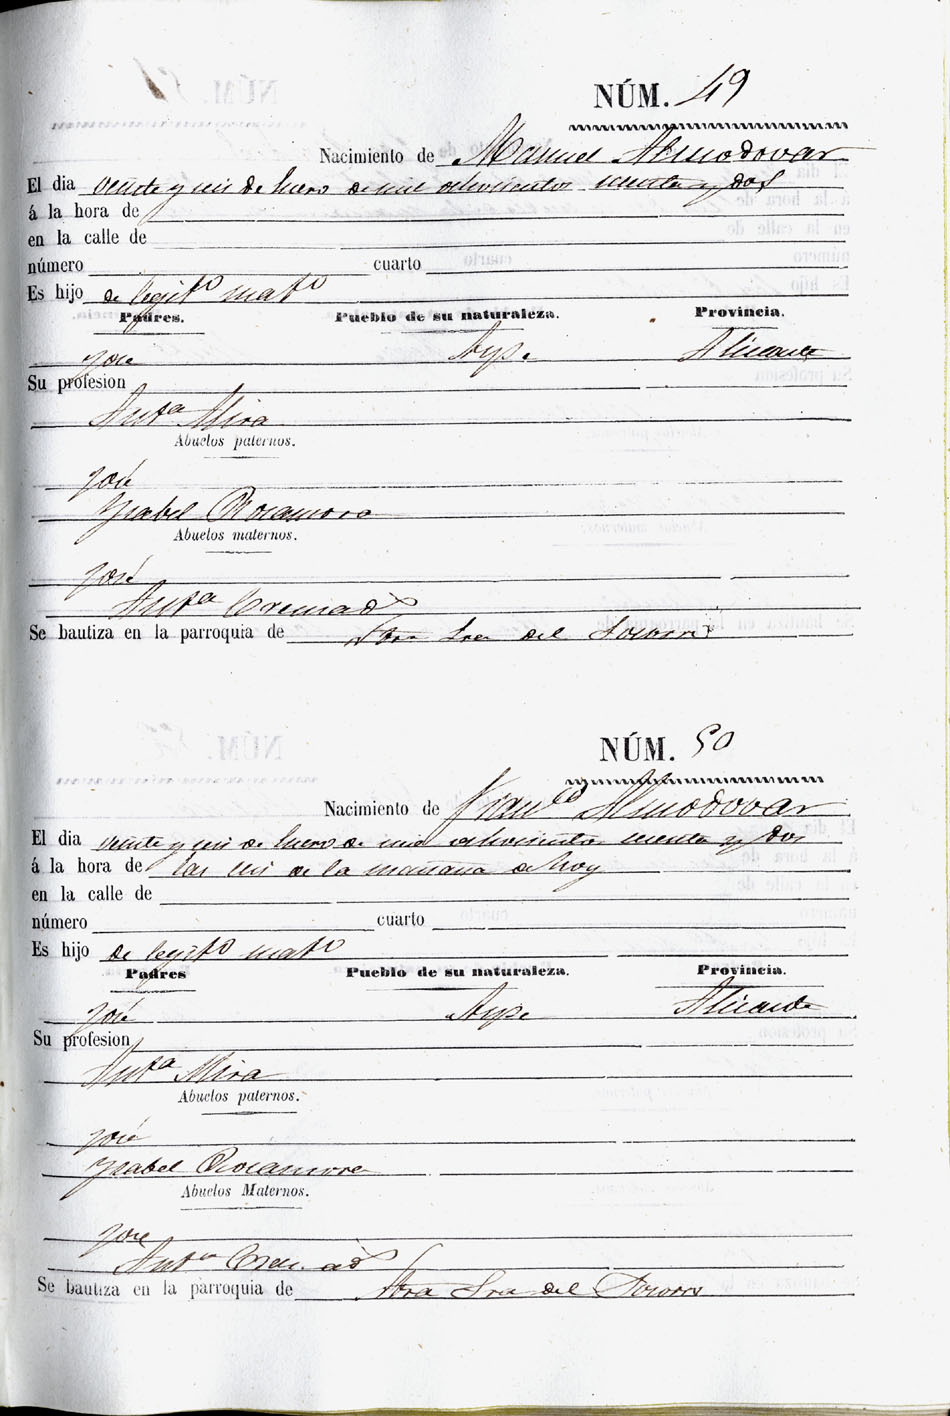 NÚM. 49
Nacimiento de Manuel Almodovar
El dia veinte y seis de Enero de mil ochocientos sesenta y dos
á la hora de
en la calle de
número cuarto
Es hijo de legitº matº
Padres. Pueblo de su naturaleza. Provincia.
José Aspe Alicante
Su profesion
Antª Mira
Abuelos paternos.
José
Ysabel Rocamora
Abuelos maternos.
José
Antª Cremad
Se bautiza en la parroquia de Ntra Sra del Socorro
NÚM. 50
Nacimiento de Francº Almodovar
El dia veinte y seis de Enero de mil ochocientos sesenta y dos
á la hora de las seis de la mañana de hoy
en la calle de
número cuarto
Es hijo de legitº matº
Padres Pueblo de su naturaleza. Provincia.
José Aspe Alicante
Su profesion
Antª Mira
Abuelos paternos.
José
Ysabel Rocamora
Abuelos Maternos.
José
Antª Cremad
Se bautiza en la parroquia de Ntra Sra del Socorro